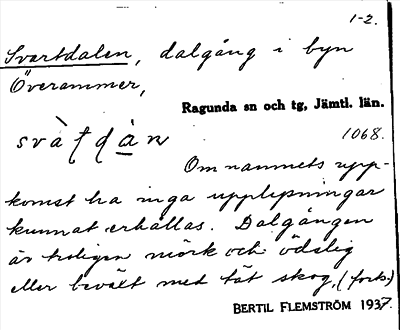 1-2.
Svartdalen, dalgång i byn
Överammer,
Ragunda sn och tg, Jämtl. län.
1068.
Om namnets upp-
komst ha inga upplysningar
kunnat erhållas. Dalgången
är troligen mörk och ödslig
eller bevält med tät skog. (forts.)
BERTIL FLEMSTRÖM 1937.